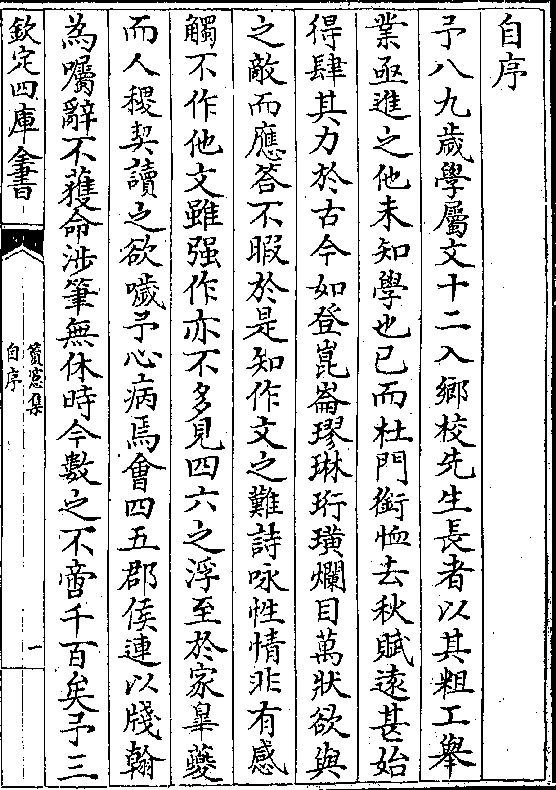 自序
予八九歲學屬文十二入鄉校先生長者以其粗工舉
業亟進之他未知學也已而杜門銜恤去秋賦逺甚始
得肆其力於古今如登崑崙璆琳珩璜爛目萬狀欲與
之敵而應答不暇於是知作文之難詩咏性情非有感
觸不作他文雖强作亦不多見四六之浮至於家臯夔
而人稷契讀之欲噦予心病焉會四五郡侯連以牋翰
為囑辭不獲命涉筆無休時今數之不啻千百矣予三
欽定四庫全書
篔窻集
自序
一